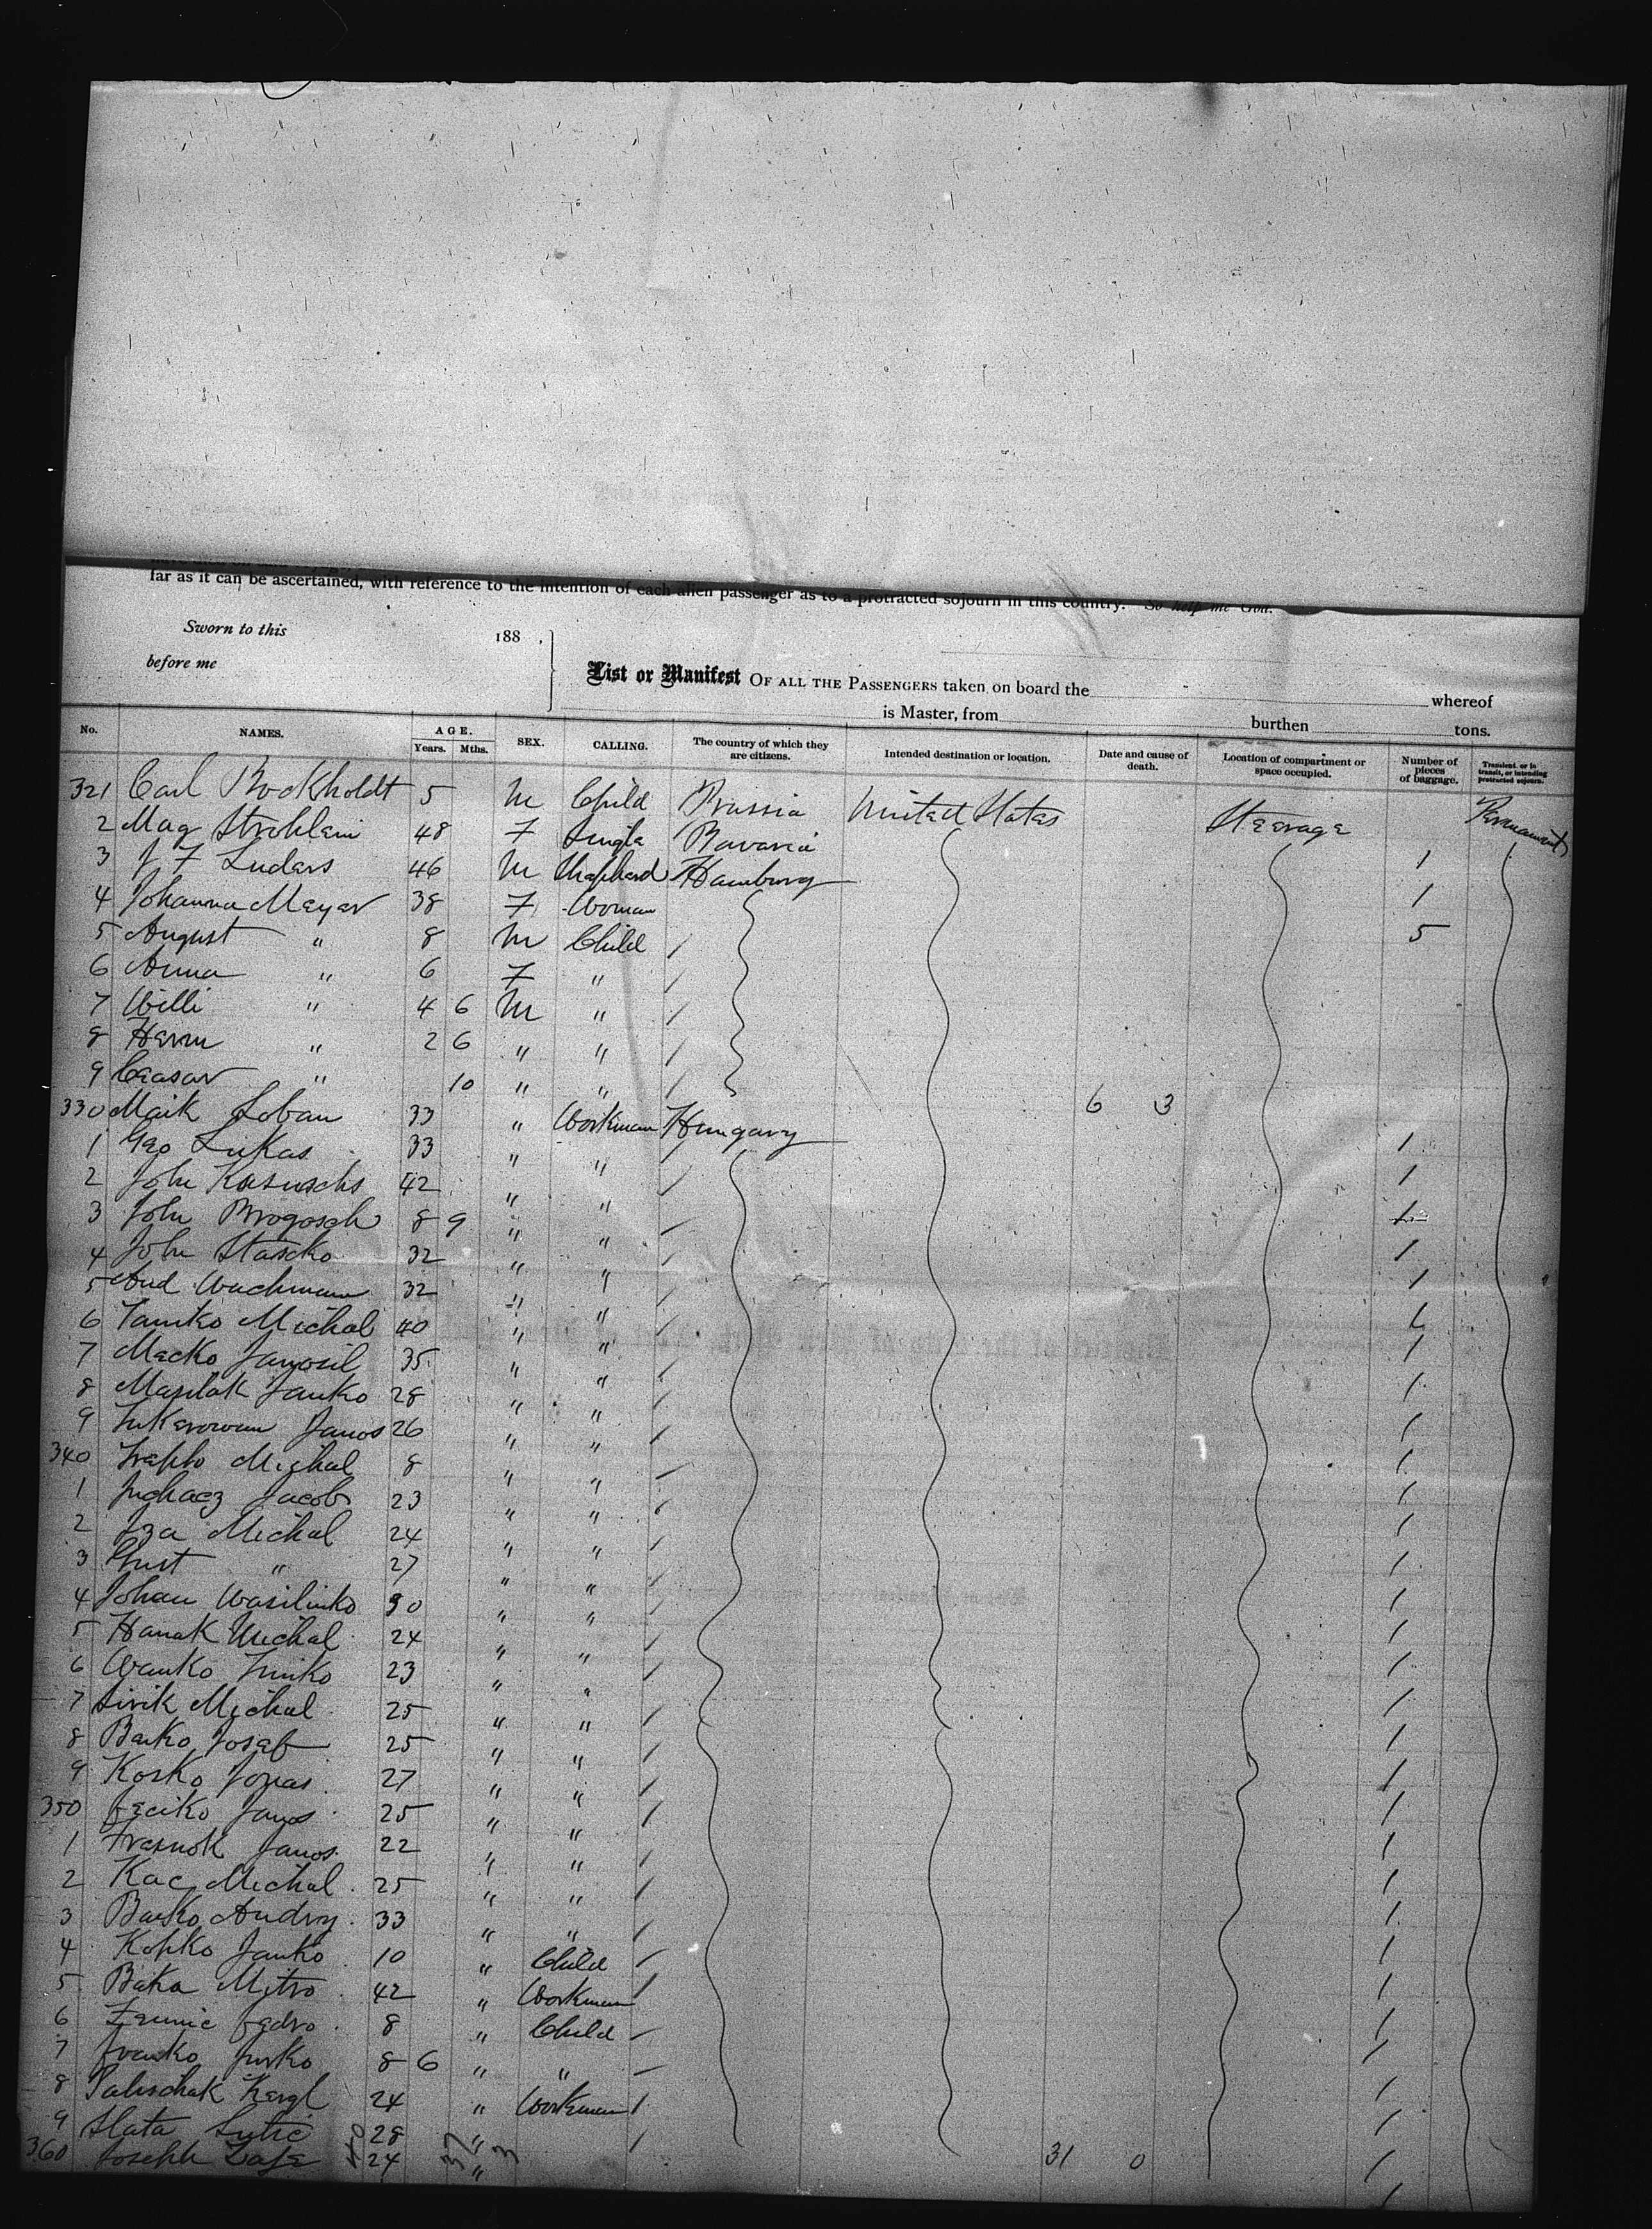 far as it can be ascertained, with reference to the intention of each alien passenger as to a protracted sojourn in this country. So help me God.
Sworn to this 188 .
before me
List or Manifest OF ALL THE PASSENGERS taken on board the whereof
is Master, from burthen tons.
No. NAMES. AGE. Years. Mths. SEX. CALLING. The country of which they are citizens. Intended destination or location. Date and cause of death. Location of compartment or space occupied. Number of pieces of baggage. Transient, or in transit, or intending protracted sojourn.
321 Carl Bockholdt 5 M Child Prussia United States Steerage Permanent
2 Mag Strohlein 48 F Single Bavaria 1
3 J F Luders 46 M Shepherd Hamburg 1
4 Johanna Meyer 38 F Woman 5
5 August " 8 M Child /
6 Anna " 6 F " /
7 Willi " 4 6 M " /
8 Herm " 2 6 " " /
9 Ceasar " 10 " " / 6 3
330 Maik Loban 33 " Workman Hungary 1
1 Geo Lukas 33 " " / 1
2 John 42 " " / 1
3 John Brogosch 8 9 " " / 1
4 John Stascko 32 " " / 1
5 And Wachmann 32 " " / 1
6 Michal 40 " " / 1
7 Macko 35 " " / 1
8 Janko 28 " " / 1
9 Janos 26 " " / 1
340 Michal 8 " " / 1
1 Jacob 23 " " / 1
2 Michal 24 " " / 1
3 " 27 " " / 1
4 Johan Wasilinko 30 " " / 1
5 Hanak Michal 24 " " / 1
6 Wanko 23 " " / 1
7 Sivik Michal 25 " " / 1
8 Josef 25 " " / 1
9 Kosko Jonas 27 " " / 1
350 Feciko Janos 25 " " / 1
1 Janos 22 " " / 1
2 Kac Michal 25 " " / 1
3 Andry 33 " " / 1
4 Kopko Janko 10 " Child / 1
5 Baka Mitro 42 " Workman / 1
6 Fedro 8 " Child / 1
7 Ivanko Jurko 8 6 " " / 1
8 24 " Workman / 1
9 28 " / 1
360 Joseph 24 " 31 0 1